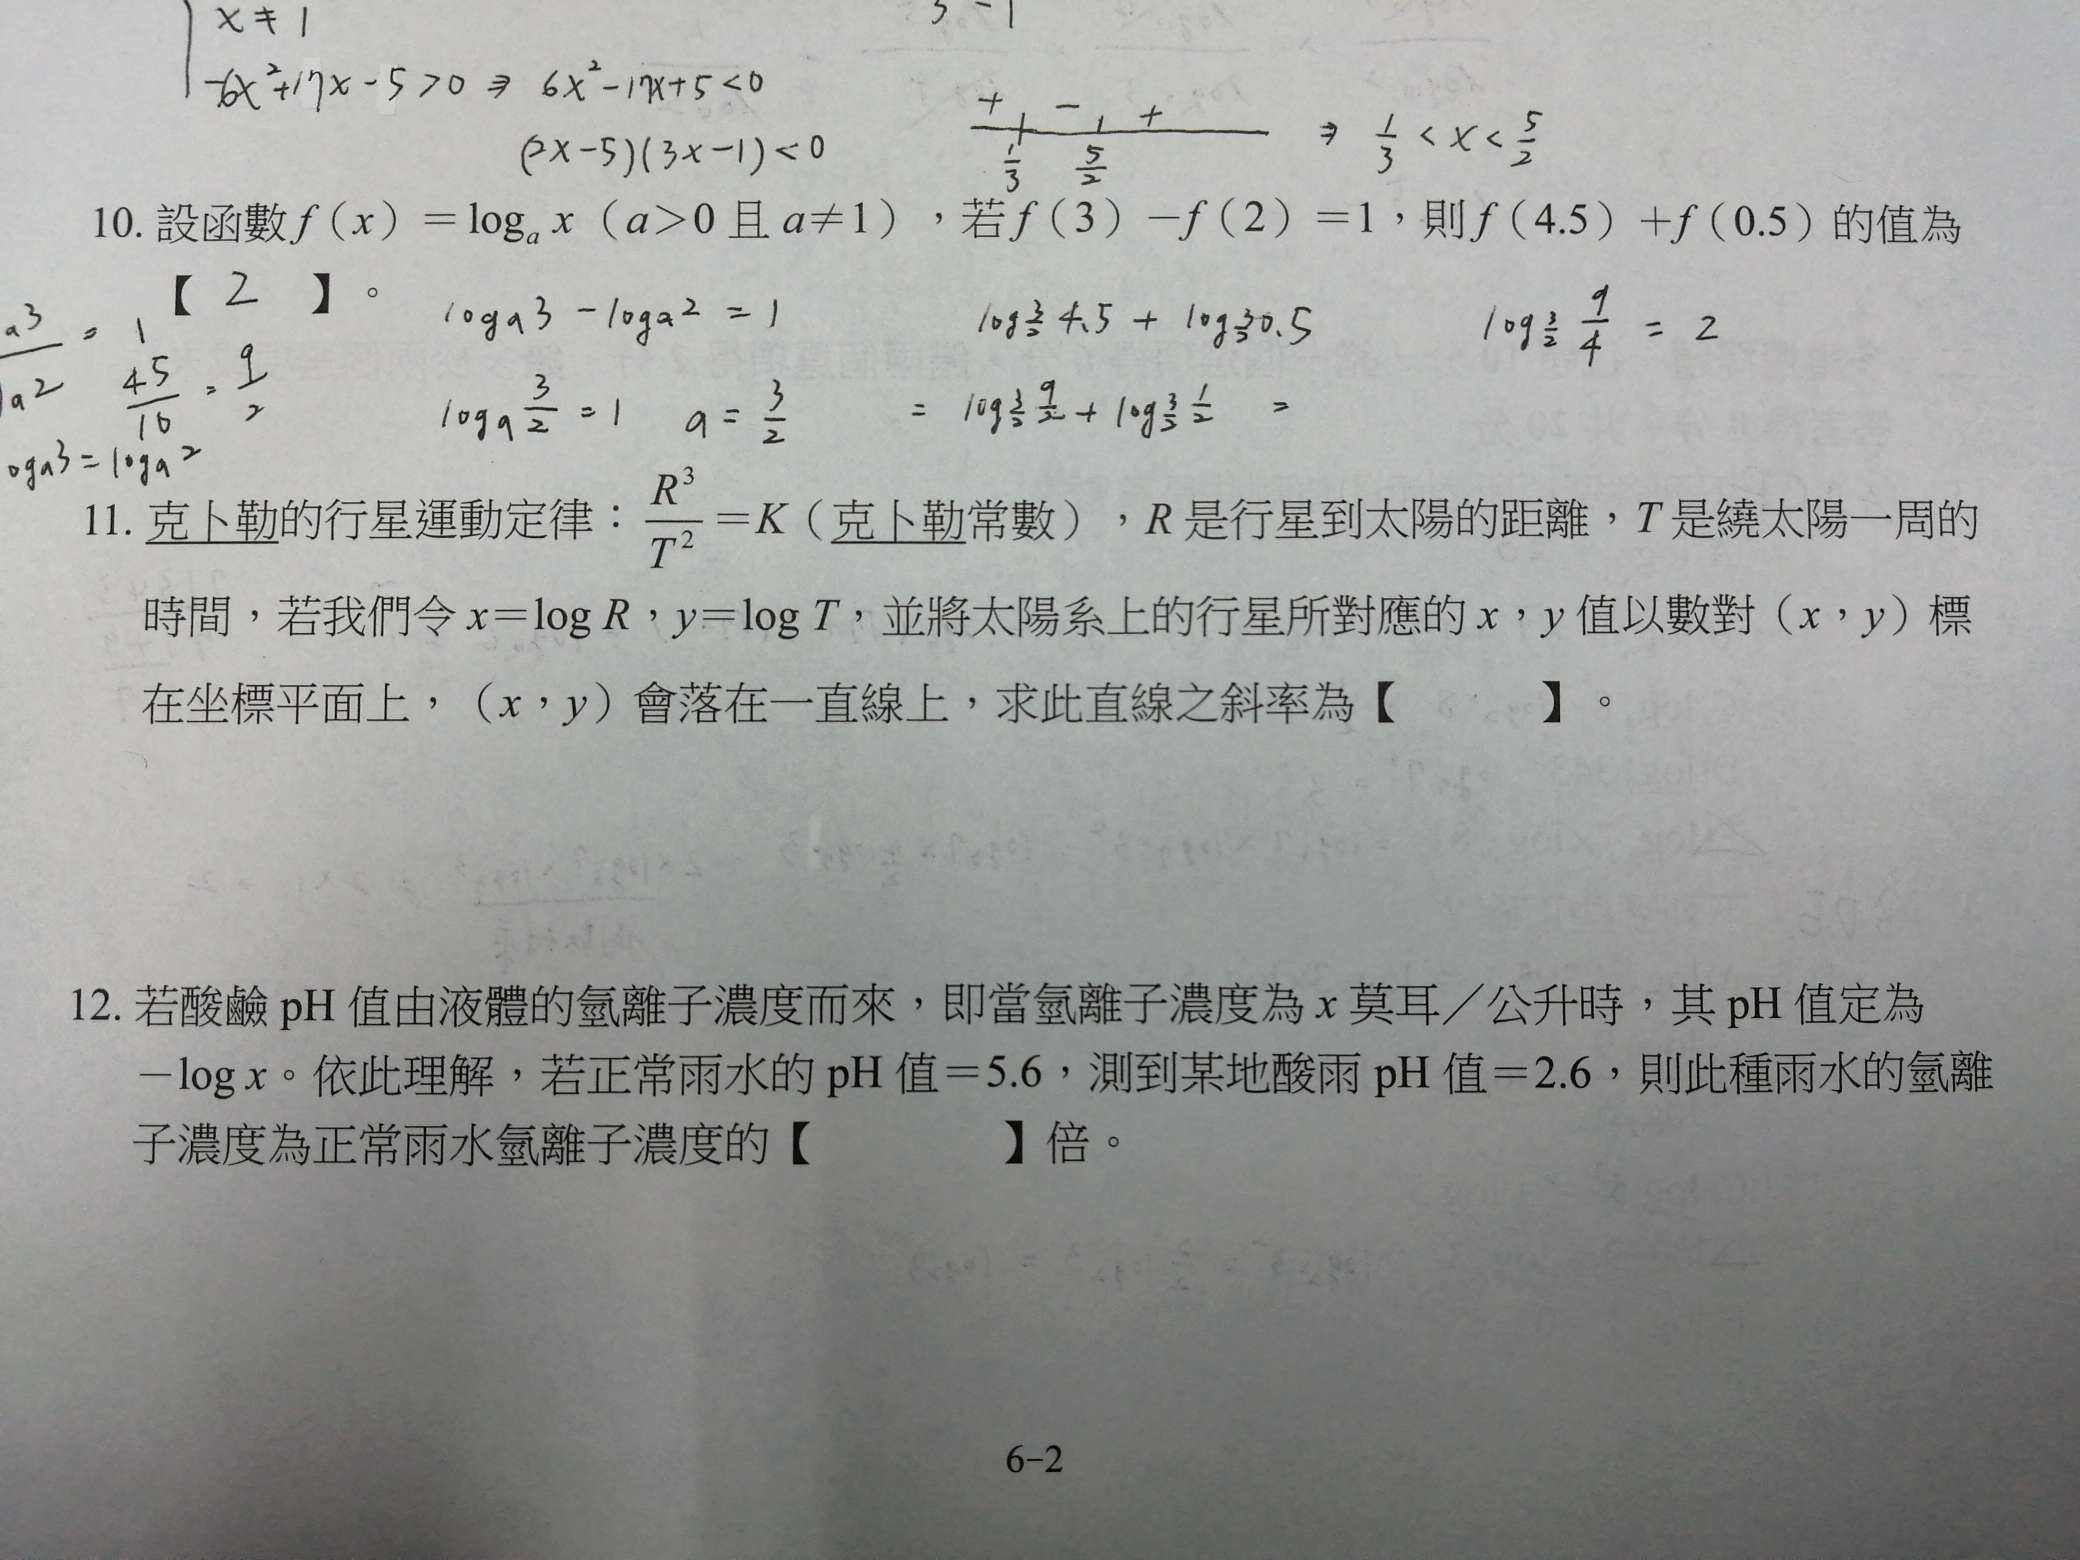 x≠1
3-1
-6x²+17x-5>0 ⇒ 6x²-17x+5<0
+ - +
(2x-5)(3x-1)<0
1/3 5/2 ⇒ 1/3<x<5/2
10. 設函數f（x）=logₐ x（a>0且a≠1），若f（3）-f（2）=1，則f（4.5）+f（0.5）的值為
【 2 】。
logₐ3-logₐ2=1
log3/2 4.5+log3/2 0.5
log3/2 9/4=2
a3
a2 =1
45/10=9/2
logₐ3/2=1 a=3/2
=log3/2 9/2+log3/2 1/2 =
ogₐ3=logₐ2
11. 克卜勒的行星運動定律：R³/T²=K（克卜勒常數），R是行星到太陽的距離，T是繞太陽一周的
時間，若我們令x=log R，y=log T，並將太陽系上的行星所對應的x，y值以數對（x，y）標
在坐標平面上，（x，y）會落在一直線上，求此直線之斜率為【 】。
12. 若酸鹼pH值由液體的氫離子濃度而來，即當氫離子濃度為x莫耳／公升時，其pH值定為
-log x。依此理解，若正常雨水的pH值=5.6，測到某地酸雨pH值=2.6，則此種雨水的氫離
子濃度為正常雨水氫離子濃度的【 】倍。
6-2